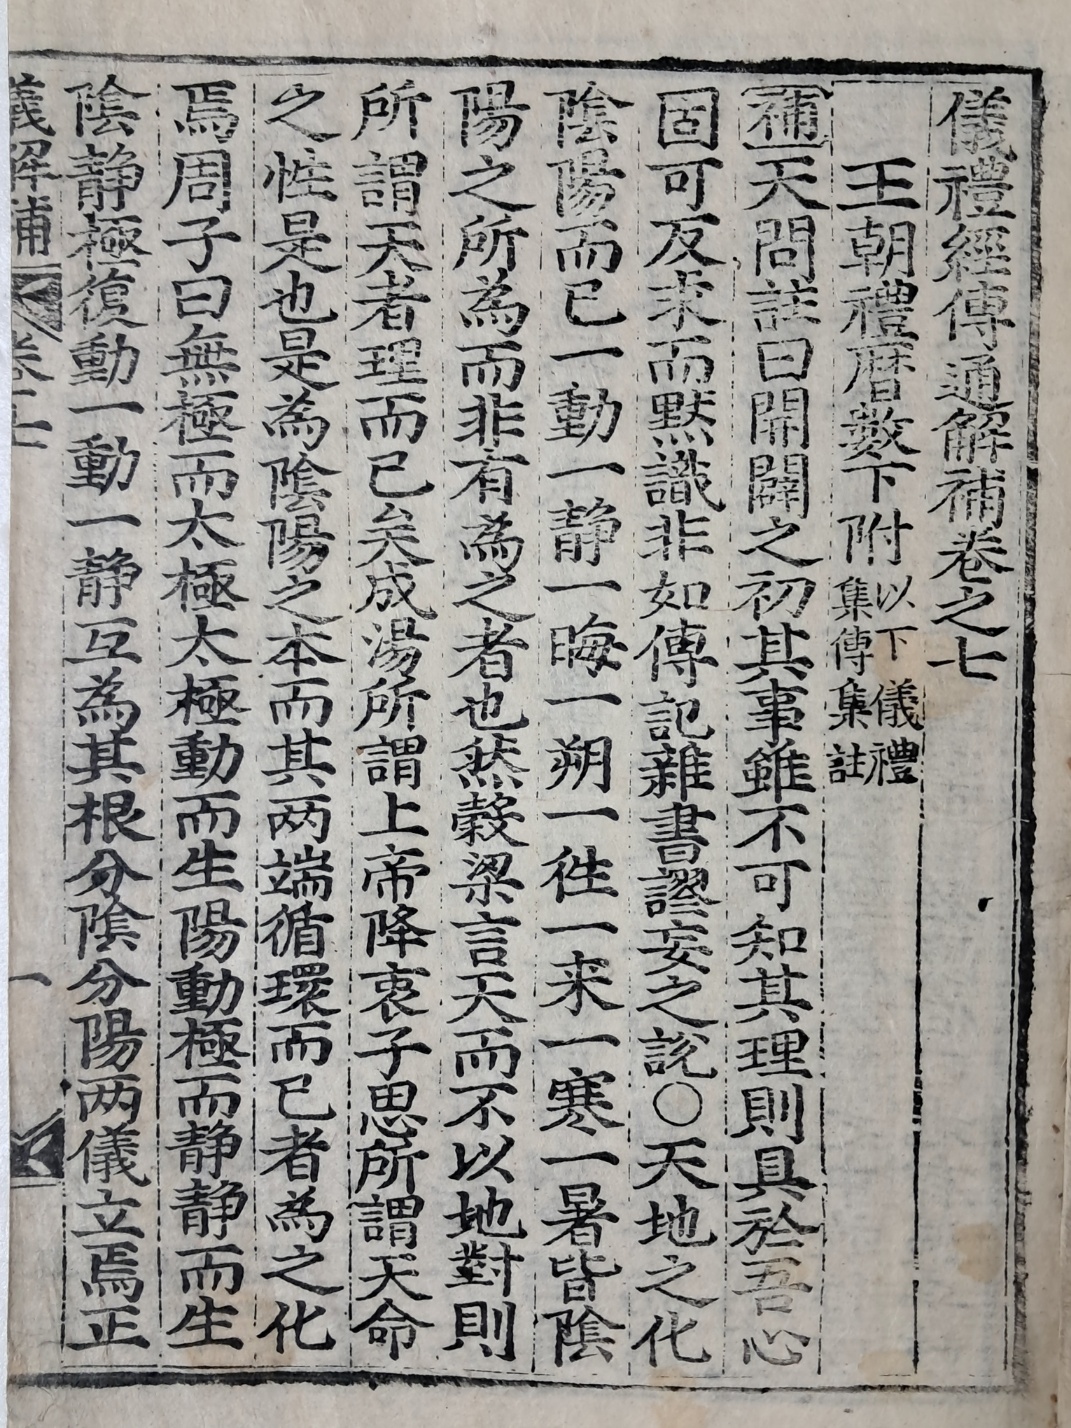 儀禮經傳通解補卷之七
王朝禮曆數下附以下儀禮集傳集註
補天問註曰開闢之初其事雖不可知其理則具於吾心
固可反求而默識非如傳記雜書謬妄之說○天地之化
陰陽而已一動一静一晦一朔一徃一来一寒一暑皆陰
陽之所為而非有為之者也然穀梁言天而不以地對則
所謂天者理而已矣成湯所謂上帝降衷子思所謂天命
之性是也是為陰陽之本而其两端循環而已者為之化
焉周子曰無極而太極太極動而生陽動極而静静而生
陰静極復動一動一静互為其根分陰分陽两儀立焉正
儀解補 卷之七 一